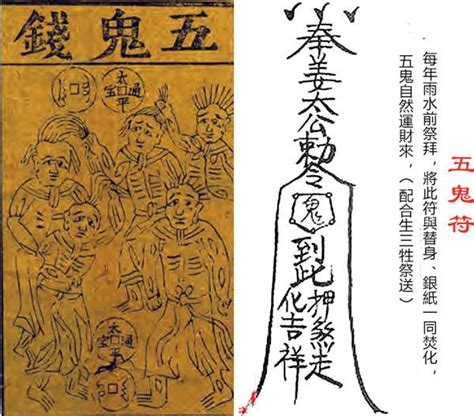 五鬼符
每年雨水前祭拜，將此符與替身、銀紙一同焚化，
五鬼自然運財來，（配合生三牲祭送）
奉姜太公勅令
鬼
到此
押煞走
化吉祥
五鬼錢
太平通宝
太平通宝